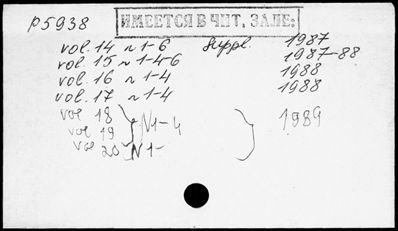 P5938 ИМЕЕТСЯ В ЧИТ. ЗАЛЕ:
vol. 14 n 1-6 Suppl. 1987
vol. 15 n 1-4-6 1987-88
vol. 16 n 1-4 1988
vol. 17 n 1-4 1988
vol 18
vol 19 N1-4 1989
vol 20 N1-